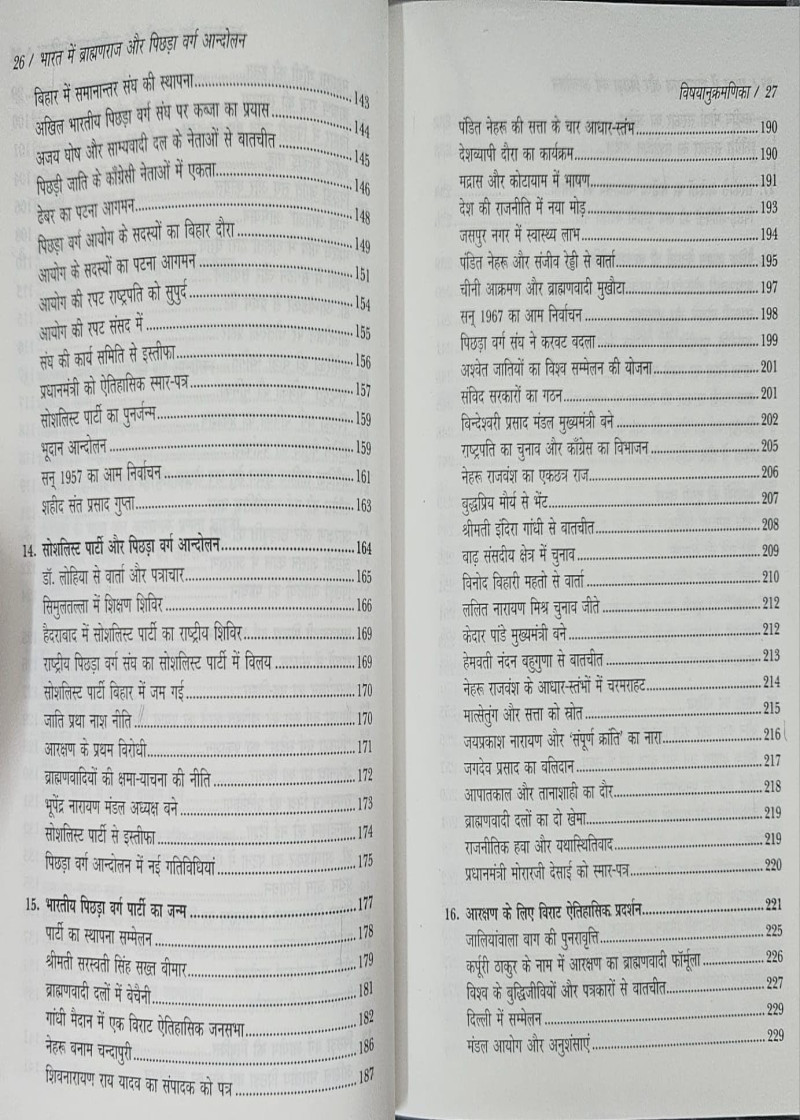 26 / भारत में ब्राह्मणराज और पिछड़ा वर्ग आन्दोलन
बिहार में समानान्तर संघ की स्थापना 143
अखिल भारतीय पिछड़ा वर्ग संघ पर कब्जा का प्रयास 144
अजय घोष और साम्यवादी दल के नेताओं से बातचीत 145
पिछड़ी जाति के काँग्रेसी नेताओं में एकता 146
ढेबर का पटना आगमन 148
पिछड़ा वर्ग आयोग के सदस्यों का बिहार दौरा 149
आयोग के सदस्यों का पटना आगमन 151
आयोग की रपट राष्ट्रपति को सुपुर्द 154
आयोग की रपट संसद में 155
संघ की कार्य समिति से इस्तीफा 156
प्रधानमंत्री को ऐतिहासिक स्मार-पत्र 157
सोशलिस्ट पार्टी का पुनर्जन्म 159
भूदान आन्दोलन 159
सन् 1957 का आम निर्वाचन 161
शहीद संत प्रसाद गुप्ता 163
14. सोशलिस्ट पार्टी और पिछड़ा वर्ग आन्दोलन 164
डॉ. लोहिया से वार्ता और पत्राचार 165
सिमुलतल्ला में शिक्षण शिविर 166
हैदराबाद में सोशलिस्ट पार्टी का राष्ट्रीय शिविर 169
राष्ट्रीय पिछड़ा वर्ग संघ का सोशलिस्ट पार्टी में विलय 169
सोशलिस्ट पार्टी बिहार में जम गई 170
जाति प्रथा नाश नीति 170
आरक्षण के प्रथम विरोधी 171
ब्राह्मणवादियों की क्षमा-याचना की नीति 172
भूपेंद्र नारायण मंडल अध्यक्ष बने 173
सोशलिस्ट पार्टी से इस्तीफा 174
पिछड़ा वर्ग आन्दोलन में नई गतिविधियां 175
15. भारतीय पिछड़ा वर्ग पार्टी का जन्म 177
पार्टी का स्थापना सम्मेलन 178
श्रीमती सरस्वती सिंह सख्त बीमार 179
ब्राह्मणवादी दलों में बेचैनी 181
गांधी मैदान में एक विराट ऐतिहासिक जनसभा 182
नेहरू बनाम चन्दापुरी 186
शिवनारायण राय यादव का संपादक को पत्र 187
विषयानुक्रमणिका / 27
पंडित नेहरू की सत्ता के चार आधार-स्तंभ 190
देशव्यापी दौरा का कार्यक्रम 190
मद्रास और कोटायाम में भाषण 191
देश की राजनीति में नया मोड़ 193
जसपुर नगर में स्वास्थ्य लाभ 194
पंडित नेहरू और संजीव रेड्डी से वार्ता 195
चीनी आक्रमण और ब्राह्मणवादी मुखौटा 197
सन् 1967 का आम निर्वाचन 198
पिछड़ा वर्ग संघ ने करवट बदला 199
अश्वेत जातियों का विश्व सम्मेलन की योजना 201
संविद सरकारों का गठन 201
विन्देश्वरी प्रसाद मंडल मुख्यमंत्री बने 202
राष्ट्रपति का चुनाव और काँग्रेस का विभाजन 205
नेहरू राजवंश का एकछत्र राज 206
बुद्धप्रिय मौर्य से भेंट 207
श्रीमती इंदिरा गांधी से बातचीत 208
बाढ़ संसदीय क्षेत्र में चुनाव 209
विनोद बिहारी महतो से वार्ता 210
ललित नारायण मिश्र चुनाव जीते 212
केदार पांडे मुख्यमंत्री बने 212
हेमवती नंदन बहुगुणा से बातचीत 213
नेहरू राजवंश के आधार-स्तंभों में चरमराहट 214
मात्सेतुंग और सत्ता को स्रोत 215
जयप्रकाश नारायण और ‘संपूर्ण क्रांति’ का नारा 216
जगदेव प्रसाद का बलिदान 217
आपातकाल और तानाशाही का दौर 218
ब्राह्मणवादी दलों का दो खेमा 219
राजनीतिक हवा और यथास्थितिवाद 219
प्रधानमंत्री मोरारजी देसाई को स्मार-पत्र 220
16. आरक्षण के लिए विराट ऐतिहासिक प्रदर्शन 221
जालियांवाला बाग की पुनरावृत्ति 225
कर्पूरी ठाकुर के नाम में आरक्षण का ब्राह्मणवादी फॉर्मूला 226
विश्व के बुद्धिजीवियों और पत्रकारों से बातचीत 227
दिल्ली में सम्मेलन 229
मंडल आयोग और अनुशंसाएं 229